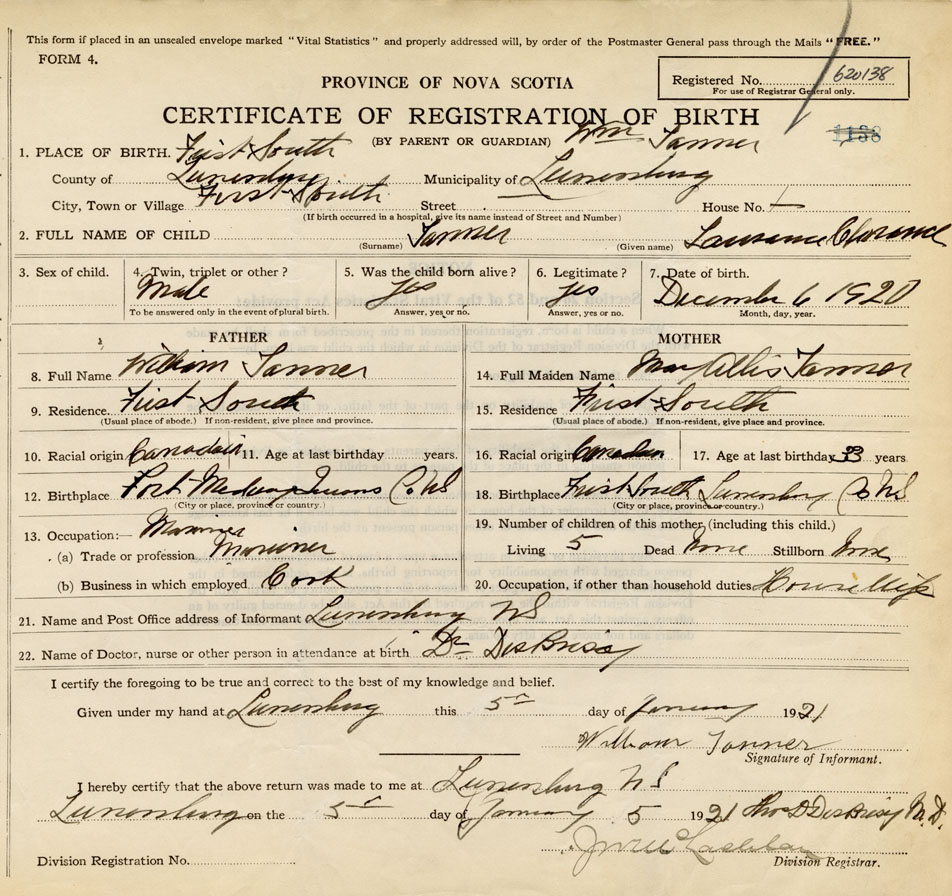 This form if placed in an unsealed envelope marked "Vital Statistics" and properly addressed will, by order of the Postmaster General pass through the Mails "FREE."
FORM 4.
PROVINCE OF NOVA SCOTIA
Registered No. 620138
For use of Registrar General only.
CERTIFICATE OF REGISTRATION OF BIRTH
1138
(BY PARENT OR GUARDIAN) Wm Tanner
1. PLACE OF BIRTH. First South
County of Lunenburg Municipality of Lunenburg
City, Town or Village First South Street House No.
(If birth occurred in a hospital, give its name instead of Street and Number)
2. FULL NAME OF CHILD Tanner
(Surname) (Given name)
3. Sex of child. 4. Twin, triplet or other? 5. Was the child born alive? 6. Legitimate? 7. Date of birth.
Male yes yes December 6 1920
To be answered only in the event of plural birth. Answer, yes or no. Answer, yes or no. Month, day, year.
FATHER MOTHER
8. Full Name William Tanner 14. Full Maiden Name Tanner
9. Residence. First South 15. Residence First South
(Usual place of abode.) If non-resident, give place and province. (Usual place of abode.) If non-resident, give place and province.
10. Racial origin Canadain 11. Age at last birthday years. 16. Racial origin Canadian 17. Age at last birthday 33 years
12. Birthplace Port Co NS 18. Birthplace First South Lunenburg Co NS
(City or place, province or country.) (City or place, province or country.)
13. Occupation:— Mariner 19. Number of children of this mother (including this child.)
(a) Trade or profession Mariner Living 5 Dead None Stillborn None
(b) Business in which employed Cook 20. Occupation, if other than household duties
21. Name and Post Office address of Informant Lunenburg NS
22. Name of Doctor, nurse or other person in attendance at birth Dr DesBrisay
I certify the foregoing to be true and correct to the best of my knowledge and belief.
Given under my hand at Lunenburg this 5th day of January 1921
William Tanner
Signature of Informant.
I hereby certify that the above return was made to me at Lunenburg NS
Lunenburg on the 5th day of January 5 1921 DesBrisay M.D.
Division Registration No. Division Registrar.